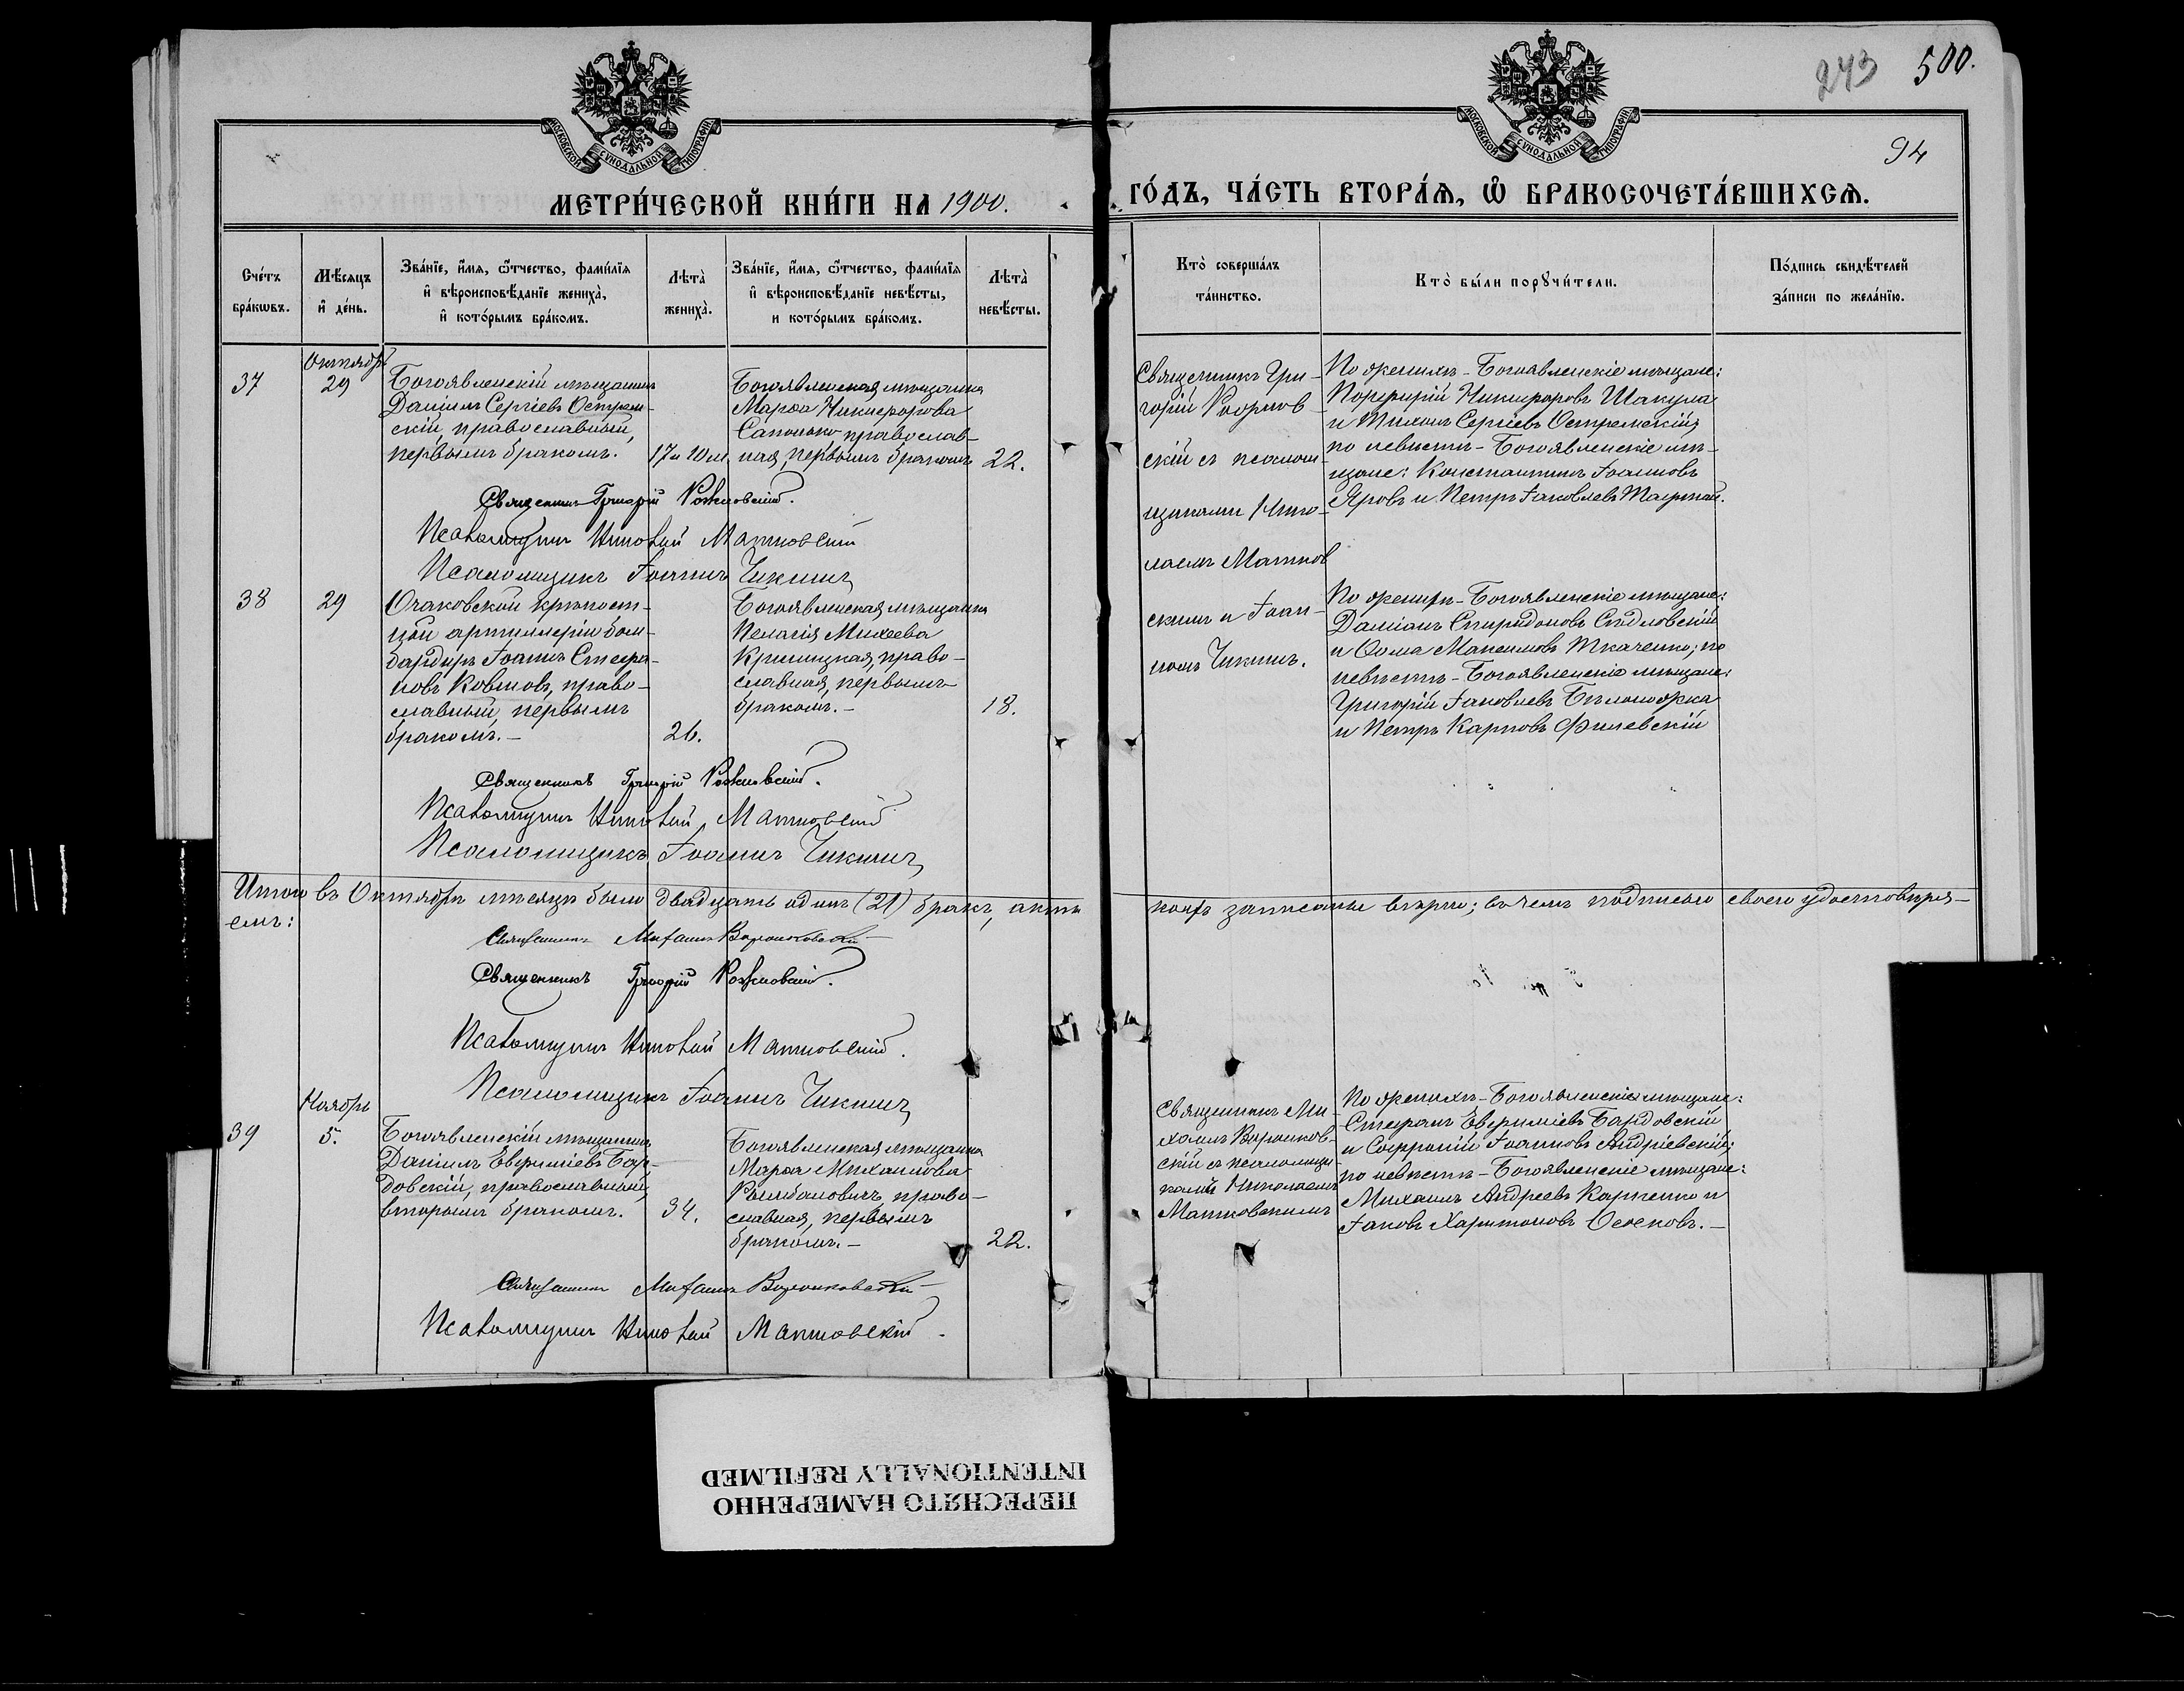 243 500.
94
МОСКОВСКОЙ СѴНОДАЛЬНОЙ ТИПОГРАФІИ
МОСКОВСКОЙ СѴНОДАЛЬНОЙ ТИПОГРАФІИ
МЕТРИ́ЧЕСКОЙ КНИ́ГИ НА 1900. ГО́ДЪ, ЧА́СТЬ ВТОРА́Ѧ, Ѡ БРАКОСОЧЕТА́ВШИХСѦ.
Сче́тъ
бра́кѡвъ.
Мѣ́сяцъ
и҆ де́нь.
Зва́нїе, и҆́мя, ѻ҆́тчество, фами́лїя
и҆ вѣроисповѣ́данїе жениха̀,
и҆ кото́рымъ бра́комъ.
Лѣта̀
жениха̀.
Зва́нїе, и҆́мя, ѻ҆́тчество, фами́лїя
и҆ вѣроисповѣ́данїе невѣ́сты,
и кото́рымъ бра́комъ.
Лѣта̀
невѣ́сты.
Кто̀ соверша́лъ
та́инство.
Кто̀ бы́ли порꙋчи́тели.
По́дпись свидѣ́телей
за́писи по жела́нїю.
37
Октябрь
29
Богоявленскій мѣщанинъ
Даніилъ Сергіевъ Острем-
скій, православный,
первымъ бракомъ.
17 и 10 м.
Богоявленская мѣщанка
Марѳа Никифорова
Сапонько православ-
ная, первымъ бракомъ
22.
Священникъ Гри-
горій Рожнов-
скій съ псалом-
щиками Нико-
лаемъ Матков
скимъ и Іоан-
номъ Чикишъ.
По женихѣ - Богоявленскіе мѣщане:
Порфирій Никифоровъ Шакула
и Тихонъ Сергіевъ Остремскій;
по невѣстѣ - Богоявленскіе мѣ-
щане: Константинъ Іоанновъ
Яровъ и Петръ Іаковлевъ
Священникъ Григорій Рожновскій.
Псаломщикъ Николай Матковскій
Псаломщикъ Іоаннъ Чикишъ
38
29
Очаковской крѣпост-
ной артиллеріи бом-
бардиръ Іоаннъ Стефа-
новъ Ковтовъ, право-
славный, первымъ
бракомъ.-
26.
Богоявленская мѣщанка
Пелагія Михеева
Криницкая, право-
славная, первымъ
бракомъ.-
18.
По женихѣ - Богоявленскіе мѣщане:
Даміанъ Спиридоновъ Сѣдловскій
и Ѳома Максимовъ Ткаченко; по
невѣстѣ - Богоявленскіе мѣщане:
Григорій Іаковлевъ Бѣлоножка
и Петръ Карповъ Филевскій
Священникъ Григорій Рожновскій.
Псаломщикъ Николай Матковскій
Псаломщикъ Іоаннъ Чикишъ
Итого въ Октябрѣ мѣсяцѣ было двадцать одинъ (21) бракъ, акты коихъ записаны вѣрно; въ чемъ подписью своею удостовѣря-
емъ:
Священникъ Михаилъ Воронковскій
Священникъ Григорій Рожновскій.
Псаломщикъ Николай Матковскій.
Псаломщикъ Іоаннъ Чикишъ
39
Ноябрь
5.
Богоявленскій мѣщанинъ
Даніилъ Евфиміевъ Бар-
довскій, православный,
вторымъ бракомъ.
34.
Богоявленская мѣщанка
Марѳа Михаилова
Рымбаловичъ, право-
славная, первымъ
бракомъ.-
22.
Священникъ Ми-
хаилъ Воронков-
скій съ псаломщи-
комъ Николаемъ
Матковскимъ
По женихѣ - Богоявленскіе мѣщане:
Стефанъ Евфиміевъ Бардовскій
и Софроній Іоанновъ Андріевскій;
по невѣстѣ - Богоявленскіе мѣщане:
Михаилъ Андреевъ Карпенко и
Іаковъ Харитоновъ
Священникъ Михаилъ Воронковскій
Псаломщикъ Николай Матковскій.
ПЕРЕСНЯТО НАМЕРЕННО
INTENTIONALLY REFILMED